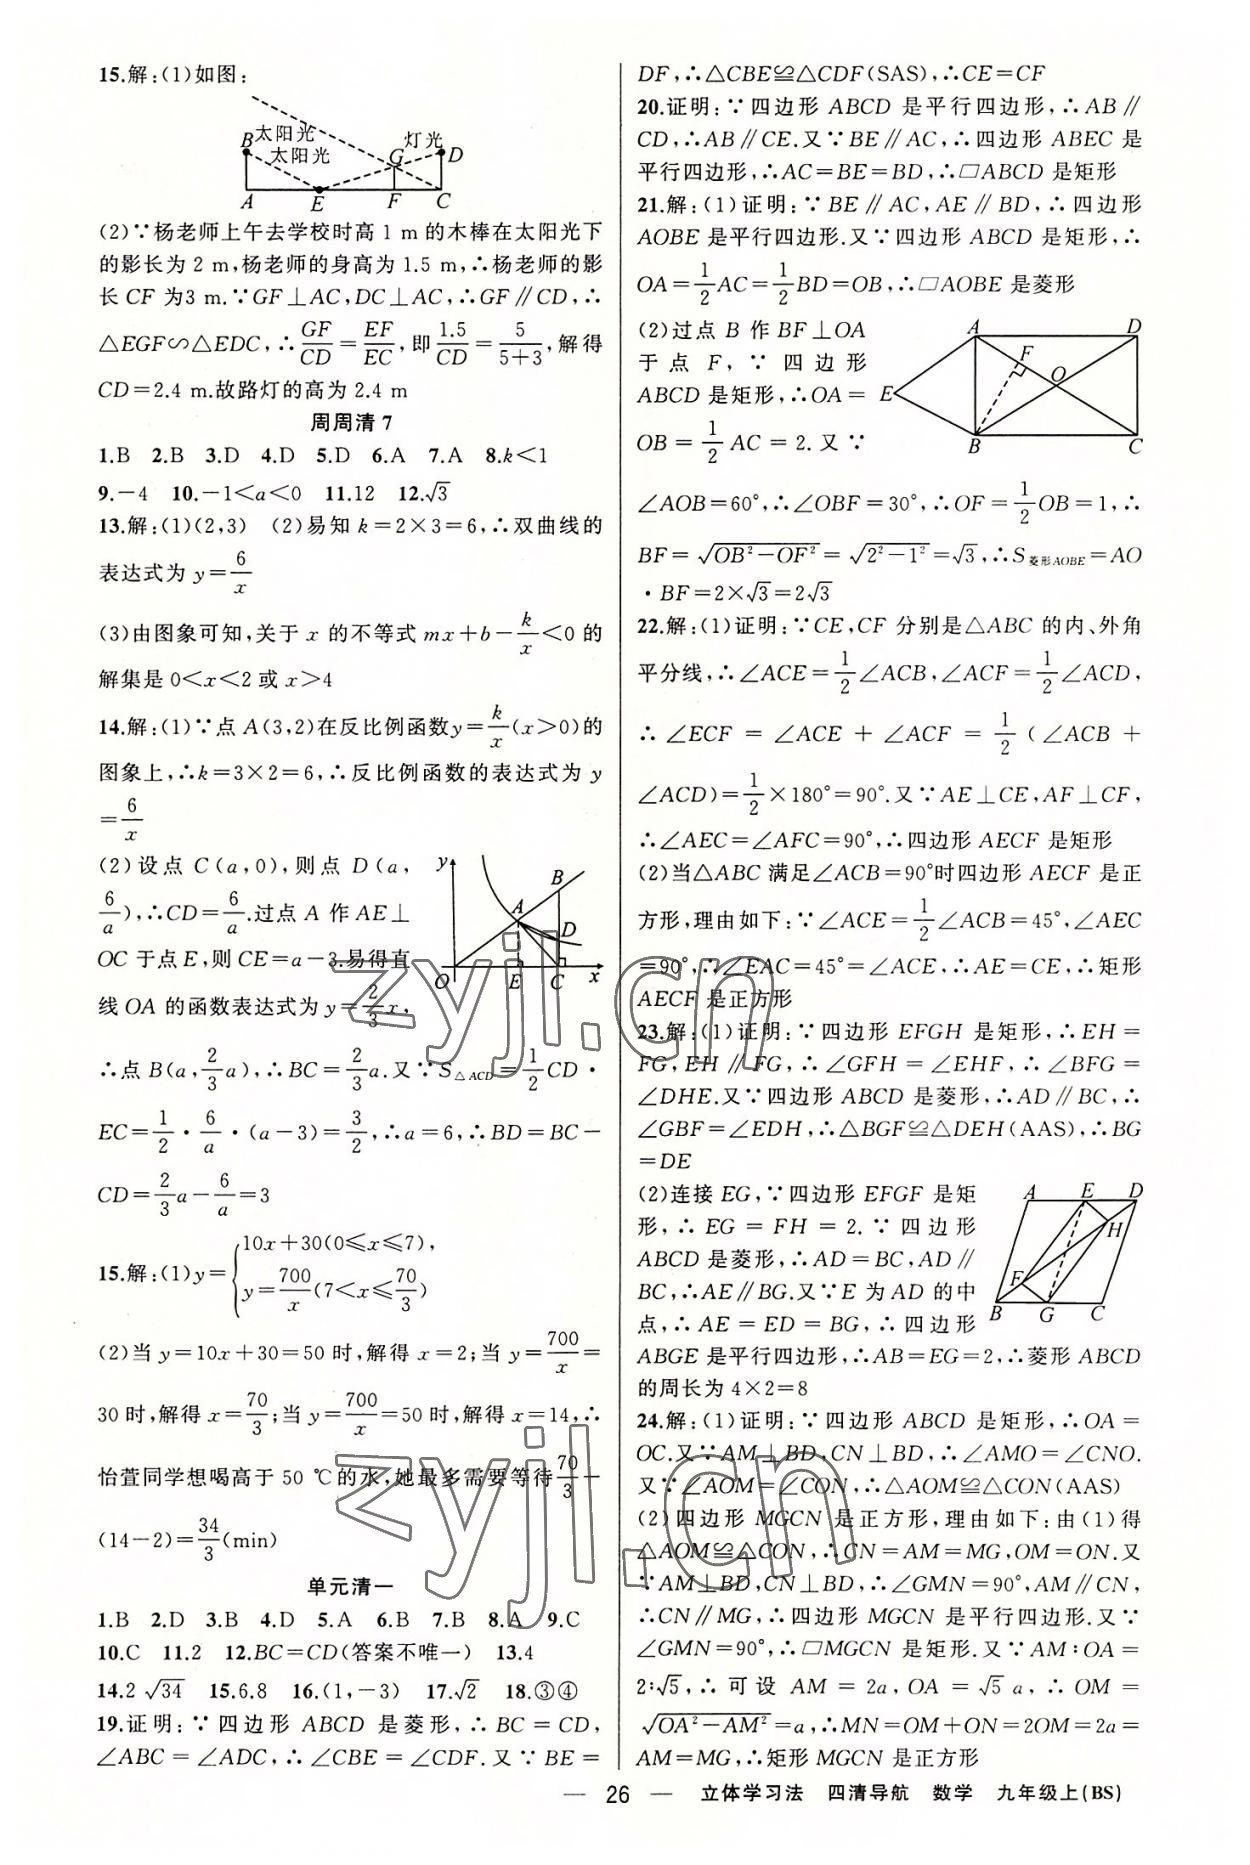 15.解:(1)如图:
太阳光
太阳光
灯光
B
G
D
A
E
F
C
(2)∵杨老师上午去学校时高 1 m 的木棒在太阳光下
的影长为 2 m,杨老师的身高为 1.5 m,∴杨老师的影
长 CF 为3 m.∵GF⊥AC,DC⊥AC,∴GF∥CD,∴
△EGF∽△EDC,∴GF/CD=EF/EC,即1.5/CD=5/(5+3),解得
CD=2.4 m.故路灯的高为 2.4 m
周周清 7
1.B 2.B 3.D 4.D 5.D 6.A 7.A 8.k<1
9.-4 10.-1<a<0 11.12 12.√3
13.解:(1)(2,3) (2)易知 k=2×3=6,∴双曲线的
表达式为 y=6/x
(3)由图象可知,关于 x 的不等式 mx+b-k/x<0 的
解集是 0<x<2 或 x>4
14.解:(1)∵点 A(3,2)在反比例函数y=k/x(x>0)的
图象上,∴k=3×2=6,∴反比例函数的表达式为 y
=6/x
(2)设点 C(a,0),则点 D(a,
6/a),∴CD=6/a.过点 A 作 AE⊥
OC 于点 E,则 CE=a-3.易得直
线 OA 的函数表达式为 y=2/3x,
y
B
A
D
O
E
C
x
∴点 B(a,2/3a),∴BC=2/3a.又∵S△ACD=1/2CD·
EC=1/2·6/a·(a-3)=3/2,∴a=6,∴BD=BC-
CD=2/3a-6/a=3
15.解:(1)y={10x+30(0≤x≤7),
y=700/x(7<x≤70/3)
(2)当 y=10x+30=50 时,解得 x=2;当 y=700/x=
30 时,解得 x=70/3;当 y=700/x=50 时,解得 x=14,∴
怡萱同学想喝高于 50 ℃的水,她最多需要等待70/3-
(14-2)=34/3(min)
单元清一
1.B 2.D 3.B 4.D 5.A 6.B 7.B 8.A 9.C
10.C 11.2 12.BC=CD(答案不唯一) 13.4
14.2√34 15.6.8 16.(1,-3) 17.√2 18.③④
19.证明:∵四边形 ABCD 是菱形,∴BC=CD,
∠ABC=∠ADC,∴∠CBE=∠CDF.又∵BE=
DF,∴△CBE≌△CDF(SAS),∴CE=CF
20.证明:∵四边形 ABCD 是平行四边形,∴AB∥
CD,∴AB∥CE.又∵BE∥AC,∴四边形 ABEC 是
平行四边形,∴AC=BE=BD,∴□ABCD 是矩形
21.解:(1)证明:∵BE∥AC,AE∥BD,∴四边形
AOBE 是平行四边形.又∵四边形 ABCD 是矩形,∴
OA=1/2AC=1/2BD=OB,∴□AOBE 是菱形
(2)过点 B 作 BF⊥OA
于点 F,∵四边形
ABCD 是矩形,∴OA=
OB=1/2AC=2.又∵
A
D
F
O
E
B
C
∠AOB=60°,∴∠OBF=30°,∴OF=1/2OB=1,∴
BF=√(OB²-OF²)=√(2²-1²)=√3,∴S菱形AOBE=AO
·BF=2×√3=2√3
22.解:(1)证明:∵CE,CF 分别是△ABC 的内、外角
平分线,∴∠ACE=1/2∠ACB,∠ACF=1/2∠ACD,
∴∠ECF=∠ACE+∠ACF=1/2(∠ACB+
∠ACD)=1/2×180°=90°.又∵AE⊥CE,AF⊥CF,
∴∠AEC=∠AFC=90°,∴四边形 AECF 是矩形
(2)当△ABC 满足∠ACB=90°时四边形 AECF 是正
方形,理由如下:∵∠ACE=1/2∠ACB=45°,∠AEC
=90°,∴∠EAC=45°=∠ACE,∴AE=CE,∴矩形
AECF 是正方形
23.解:(1)证明:∵四边形 EFGH 是矩形,∴EH=
FG,EH∥FG,∴∠GFH=∠EHF,∴∠BFG=
∠DHE.又∵四边形 ABCD 是菱形,∴AD∥BC,∴
∠GBF=∠EDH,∴△BGF≌△DEH(AAS),∴BG
=DE
(2)连接 EG,∵四边形 EFGF 是矩
形,∴EG=FH=2.∵四边形
ABCD 是菱形,∴AD=BC,AD∥
BC,∴AE∥BG.又∵E 为 AD 的中
点,∴AE=ED=BG,∴四边形
A
E
D
H
F
B
G
C
ABGE 是平行四边形,∴AB=EG=2,∴菱形 ABCD
的周长为 4×2=8
24.解:(1)证明:∵四边形 ABCD 是矩形,∴OA=
OC.又∵AM⊥BD,CN⊥BD,∴∠AMO=∠CNO.
又∵∠AOM=∠CON,∴△AOM≌△CON(AAS)
(2)四边形 MGCN 是正方形,理由如下:由(1)得
△AOM≌△CON,∴CN=AM=MG,OM=ON.又
∵AM⊥BD,CN⊥BD,∴∠GMN=90°,AM∥CN,
∴CN∥MG,∴四边形 MGCN 是平行四边形.又∵
∠GMN=90°,∴□MGCN 是矩形.又∵AM∶OA=
2∶√5,∴可设 AM=2a,OA=√5a,∴OM=
√(OA²-AM²)=a,∴MN=OM+ON=2OM=2a=
AM=MG,∴矩形 MGCN 是正方形
zyjl.cn
zyjl.cn
— 26 — 立体学习法 四清导航 数学 九年级上(BS)